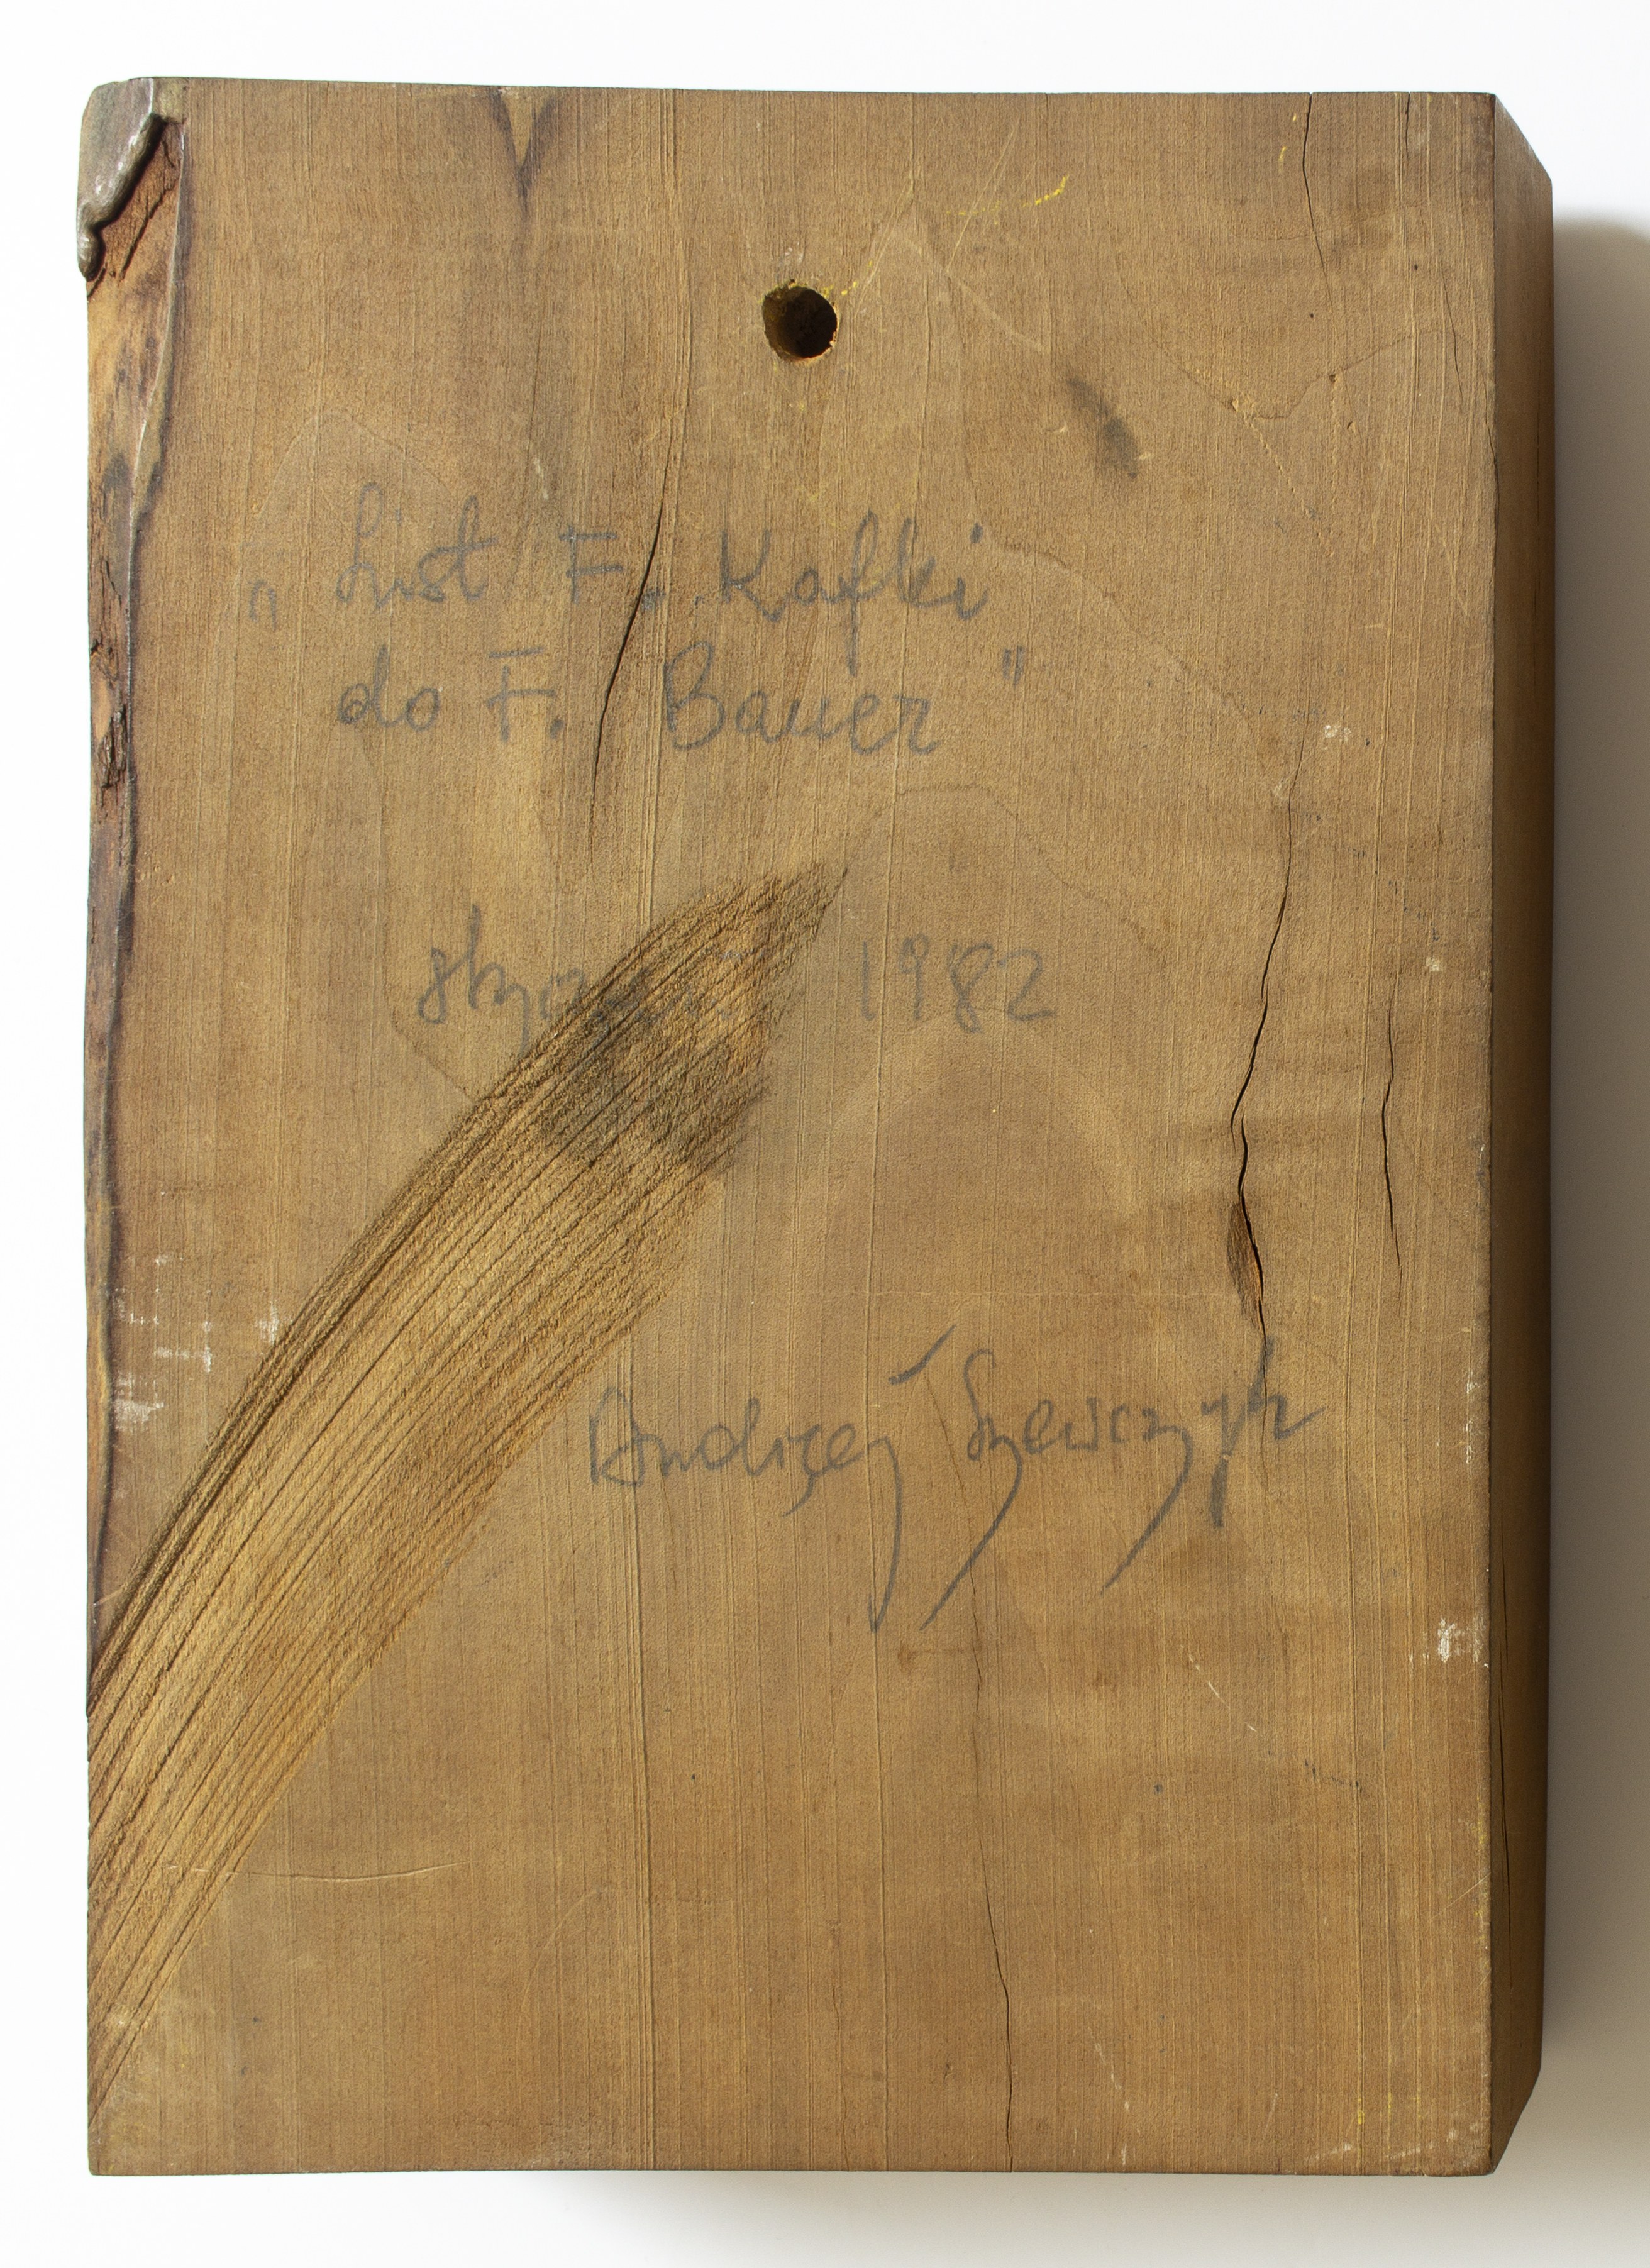 „List F. Kafki
do F. Bauer"
styczeń 1982
Andrzej Szewczyk